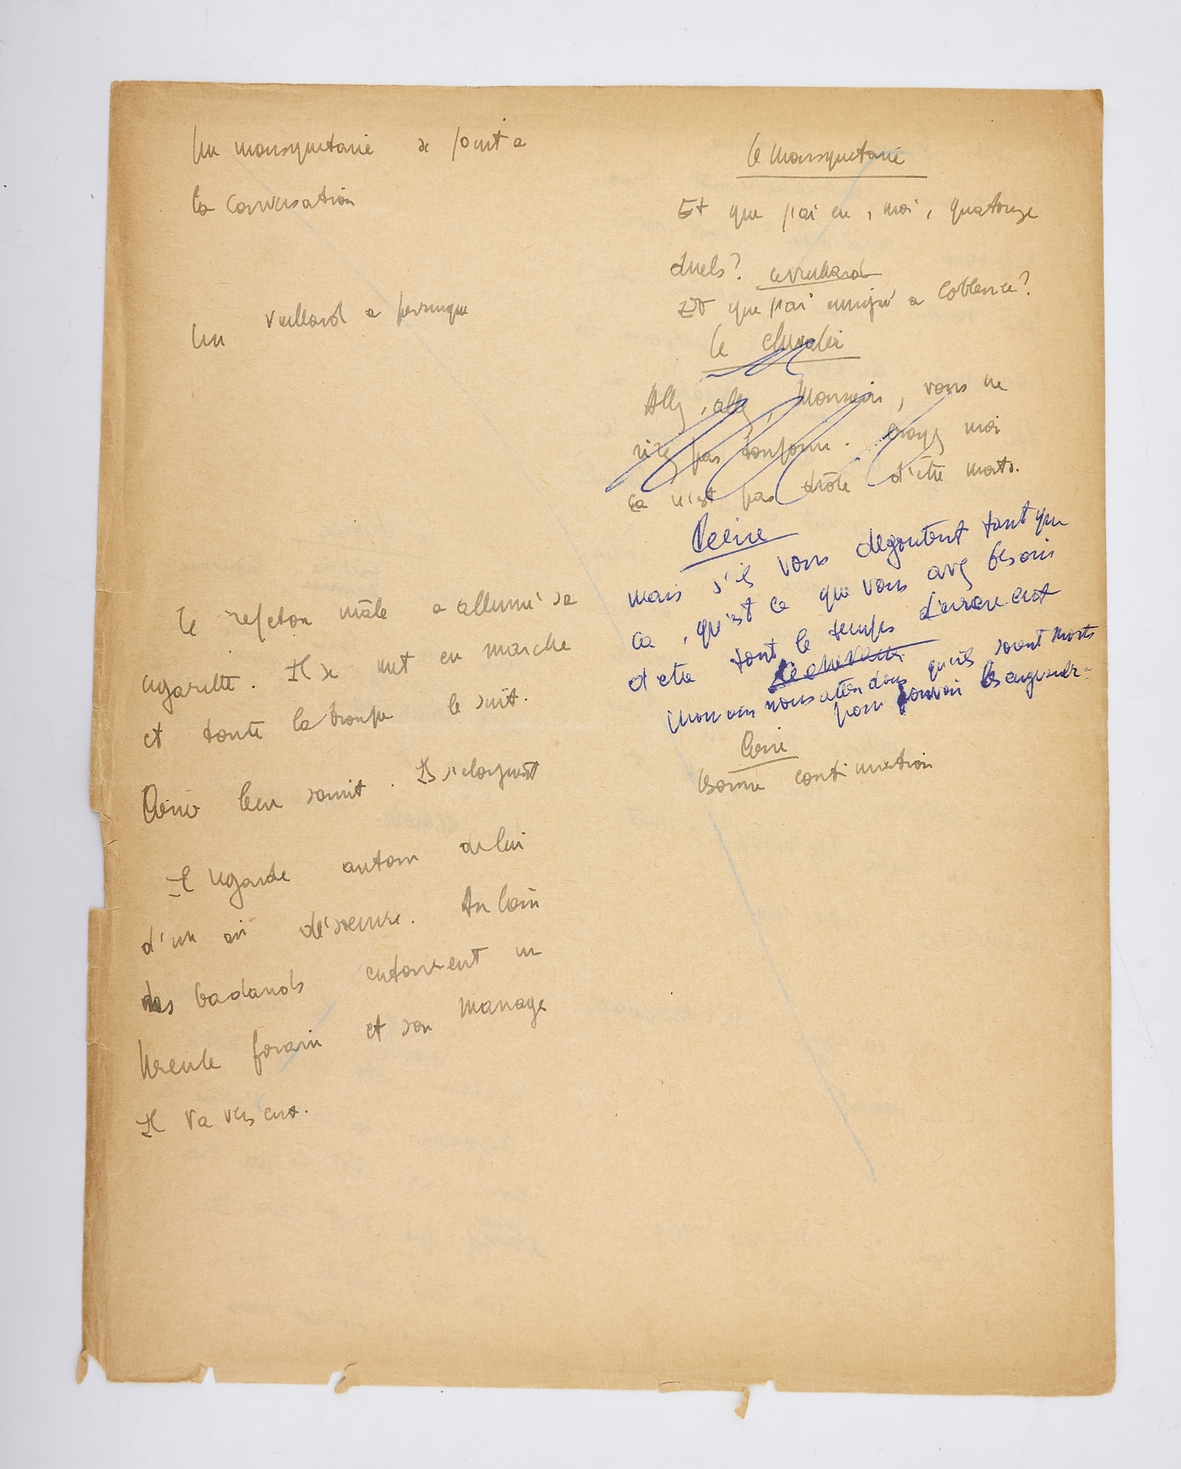 Un mousquetaire se joint a
la conversation
Un vieillard a perruque
Le rejeton mâle a allumé sa
cigarette. Il se met en marche
et toute la troupe le suit.
leur sourit. Ils s'eloignent
Il regarde autour de lui
d'un air désoeuvré. Au loin
des badauds entourent un
Hercule forain et son manage
Il va vers eux.
Le Mousquetaire
Et que j'ai eu, moi, quatorze
duels?
le vieillard
Et que j'ai émigré a Coblence?
Le chevalier
Allez, allez, Monsieur, vous ne
riez pas toujours. Croyez moi
ça n'est pas drôle d'être morts.
mais s'ils vous degoutent tant que
ca, qu'est ce que vous avez besoin
d'etre tout le temps
Le chevalier
nous attendons qu'ils soient morts
pour pouvoir les engueuler
bonne continuation